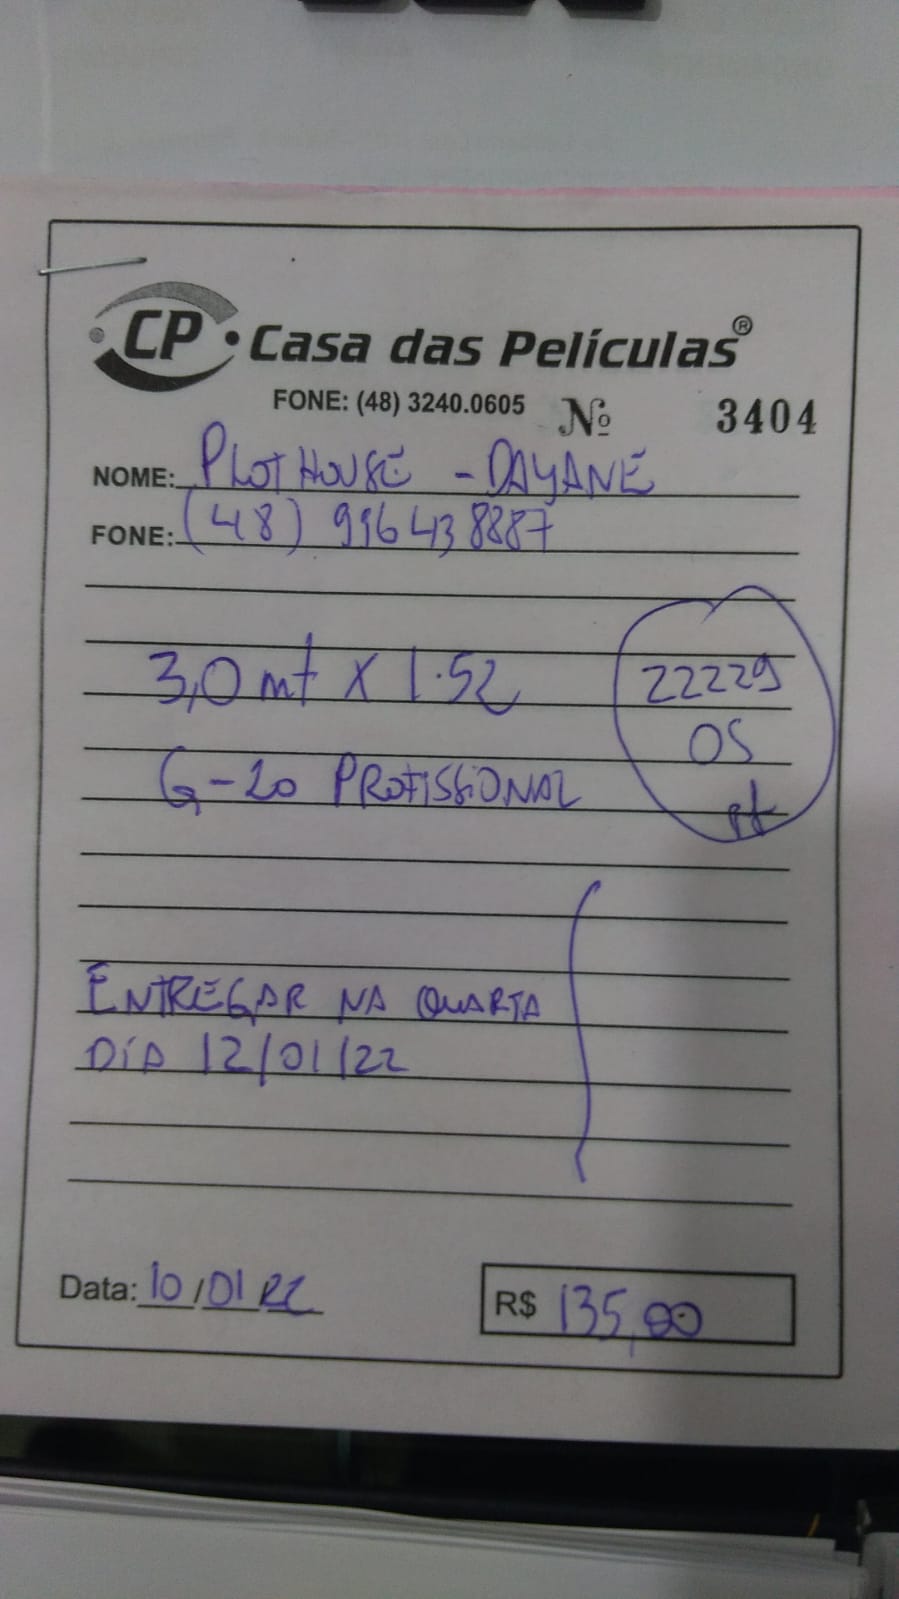 CP Casa das Películas®
FONE: (48) 3240.0605 Nº 3404
NOME: PLOTHOUSE - DAYANE
FONE: (48) 996438887
3,0 mt X 1.52
22229
OS
G-20 PROFISSIONAL
ENTREGAR NA QUARTA
DIA 12/01/22
Data: 10/01/22
R$ 135,00